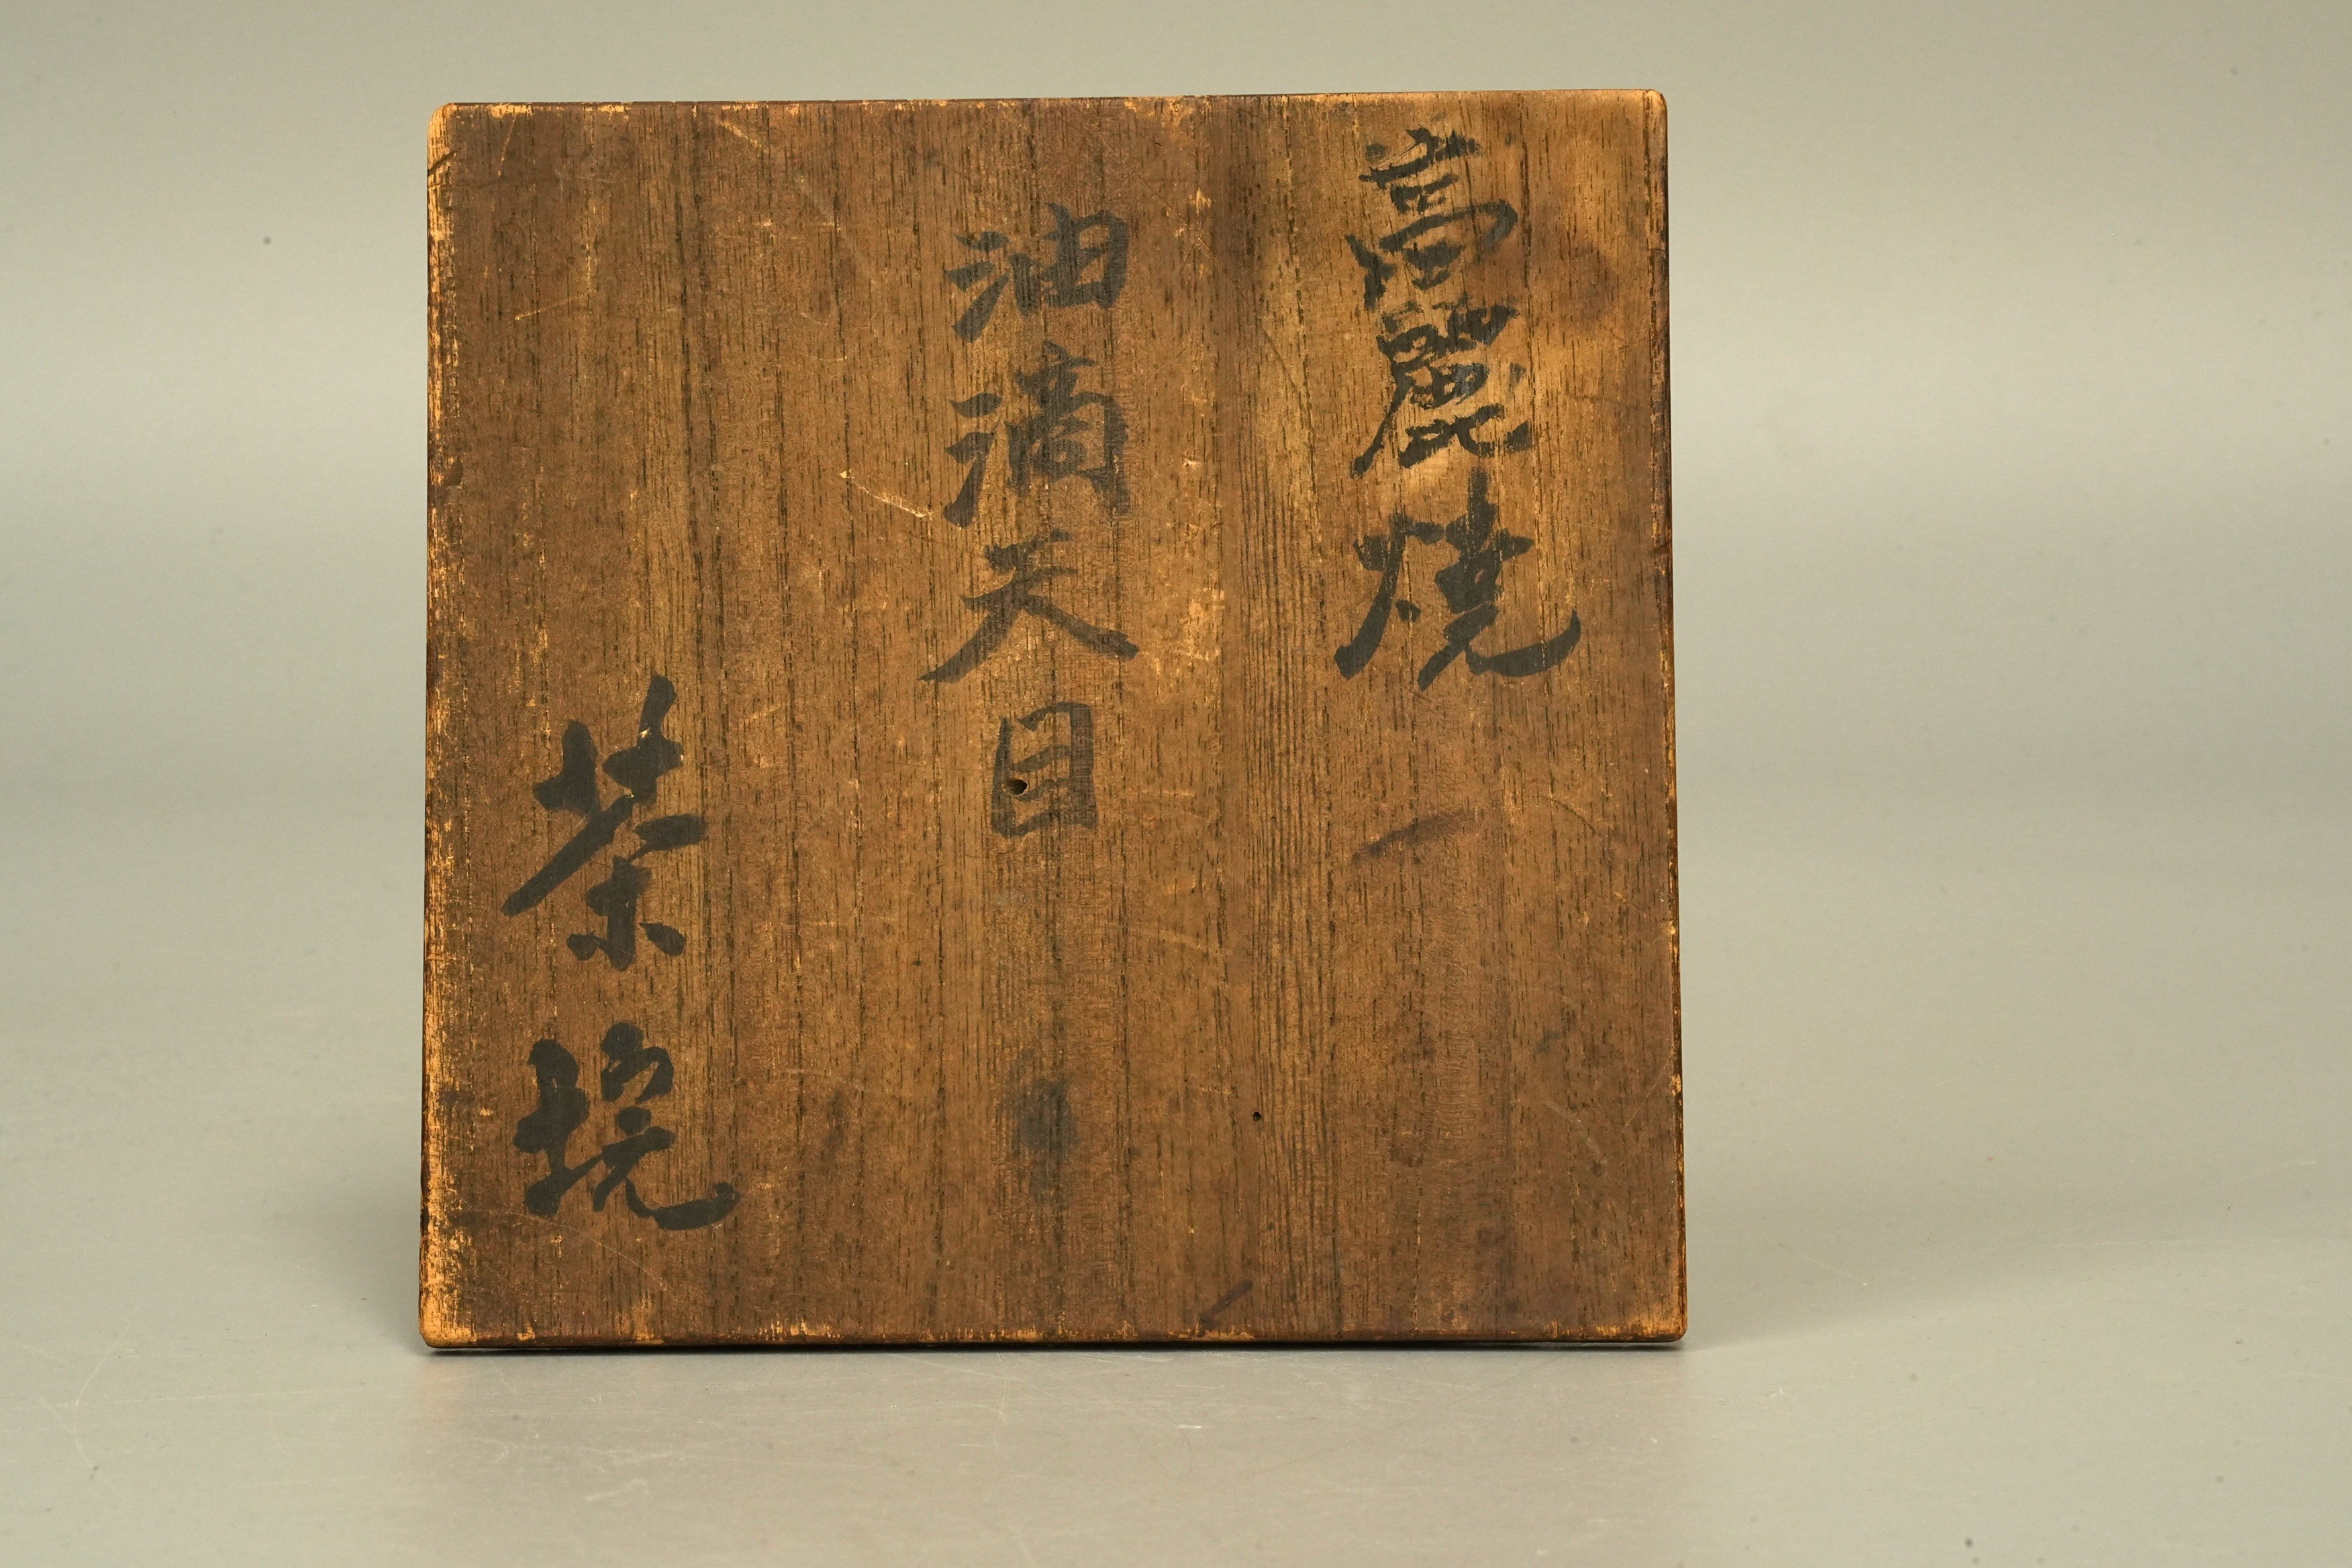 高麗焼
油滴天目
茶埦